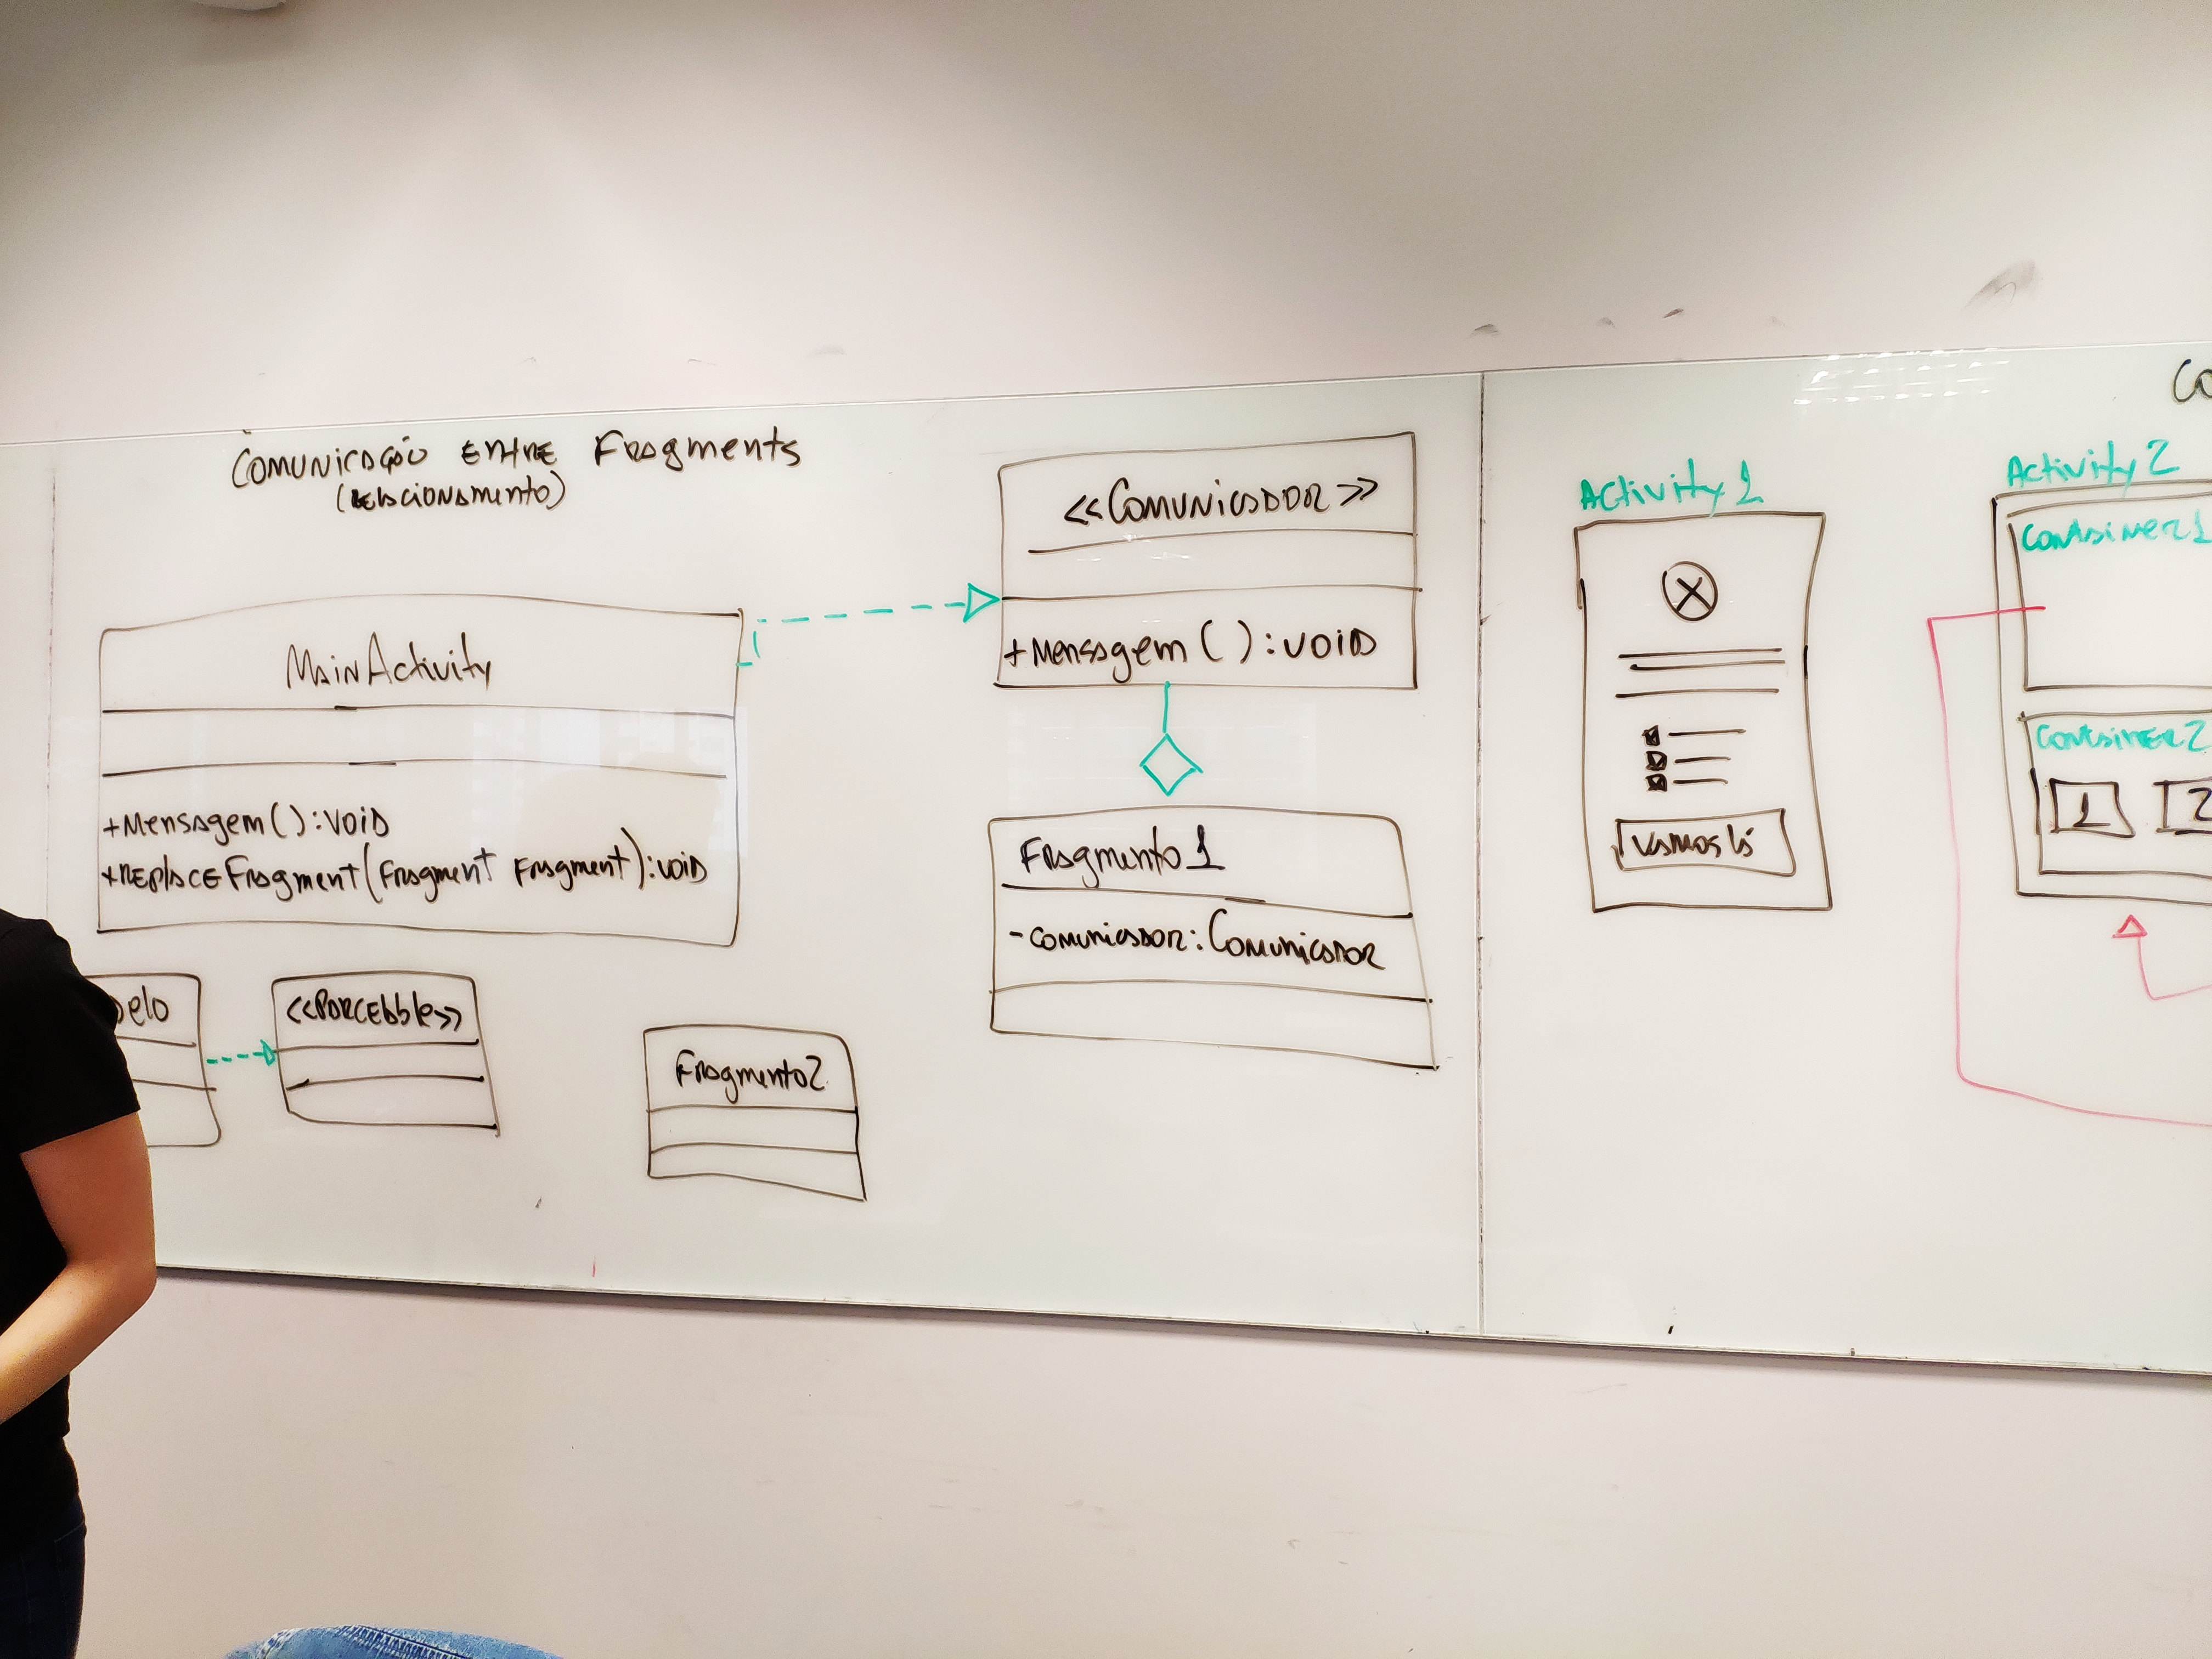 Comunicação entre Fragments
(relacionamento)
<<Comunicador>>
+Mensagem():void
MainActivity
+Mensagem():void
+ReplaceFragment(Fragment Fragment):void
Fragmento1
-comunicador:Comunicador
delo
<<Parcebble>>
Fragmento2
Co
Activity 1
Vamos lá
Activity 2
Container1
Container2
1 2